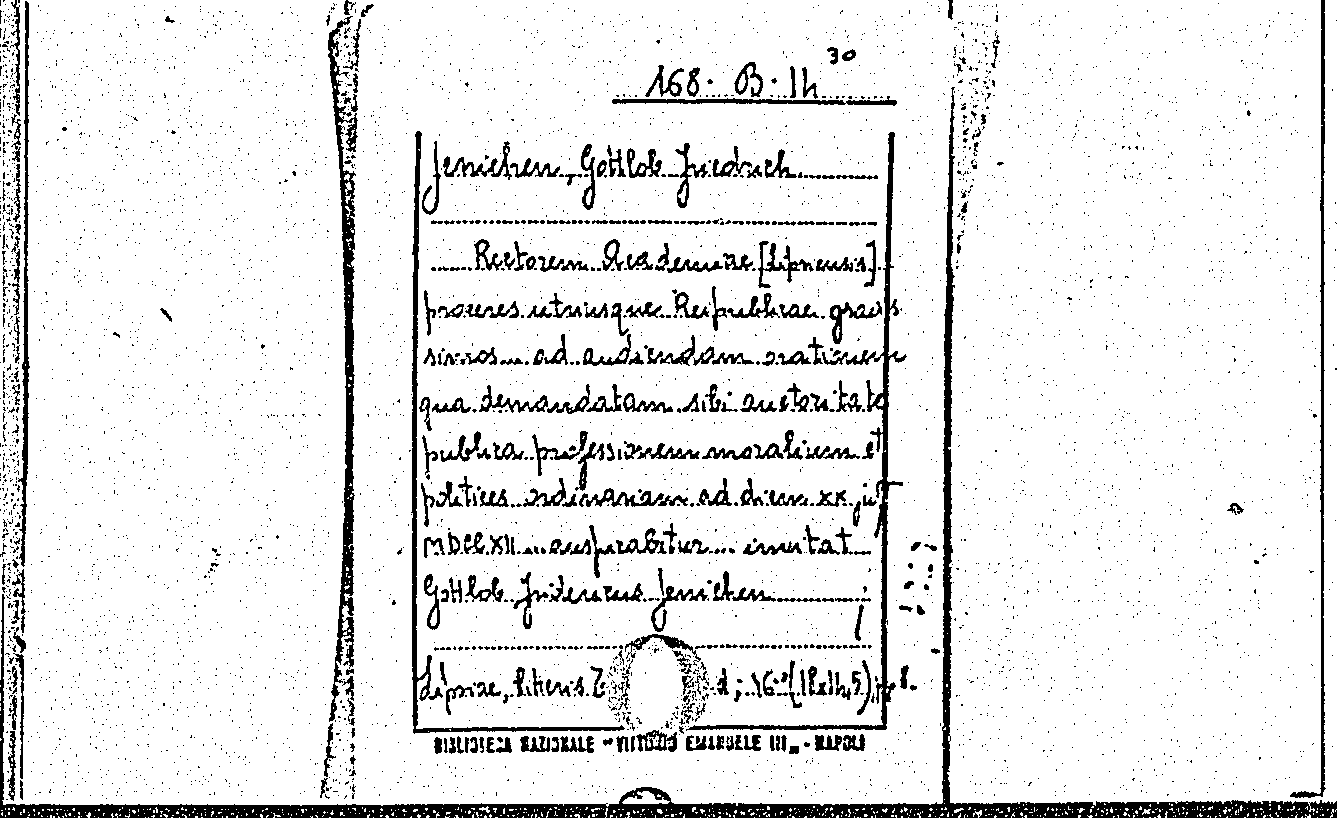 168. B. 14 30
Jenichen, Gottlob Friedrich
Rectorem Academiae [Lipsiensis]
proceres utriusque Reipublicae gravis
simos ... ad audiendam orationem
qua demandatam sibi auctoritate
publica professionem moralium et
politices ordinariam ad diem XX
MDCCXII ... auspicabitur ... invitat
Gottlob Fridericus Jenichen
Lipsiae, literis
BIBLIOTECA NAZIONALE "VITTORIO EMANUELE III" - NAPOLI